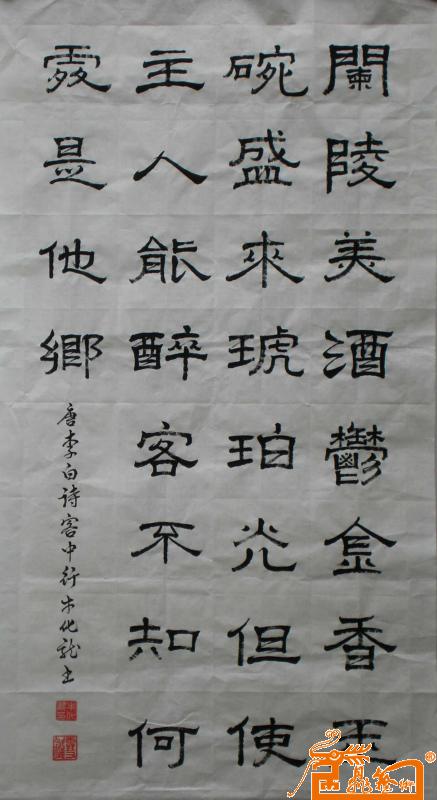 闌陵美酒鬱金香玉
碗盛來琥珀光但使
主人能醉客不知何
處是他鄉
唐李白诗客中行牛化龍书